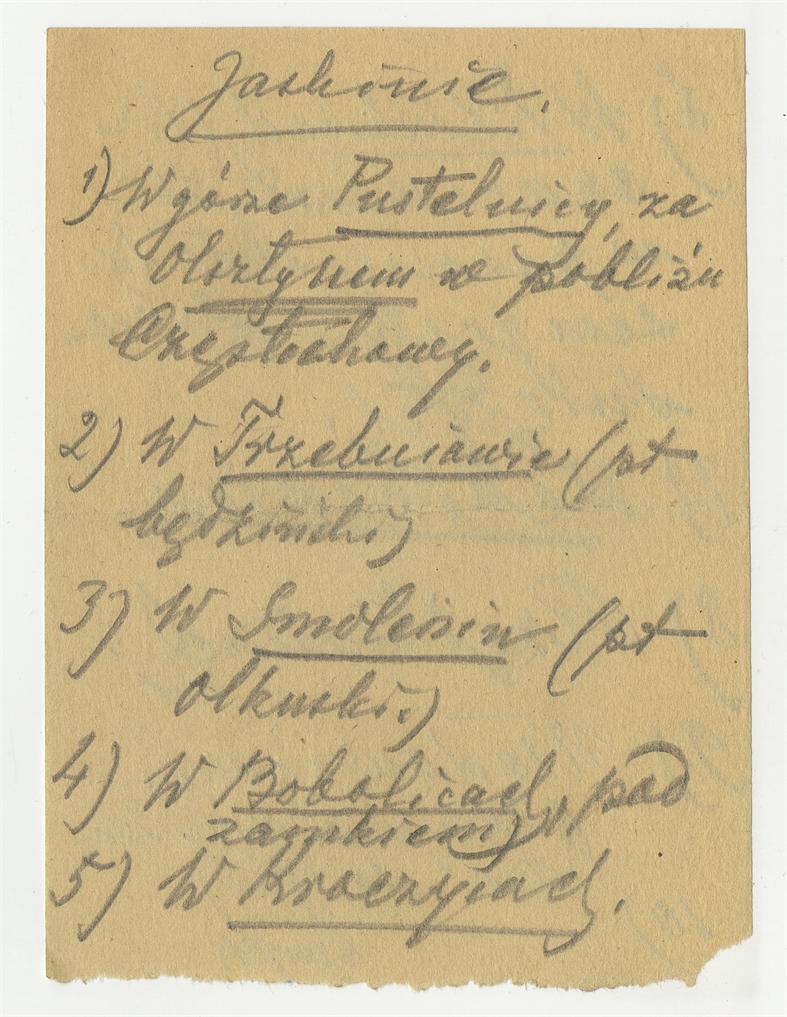 Jaskinie.
1) W górze Pustelnicy, za
Olsztynem w pobliżu
Częstochowy.
2) W Trzebniawie (pt
będziński)
3) W Smoleniu (pt
olkuski.)
4) W Bobolicach, pod
zamkiem)
5) W Kroczycach.